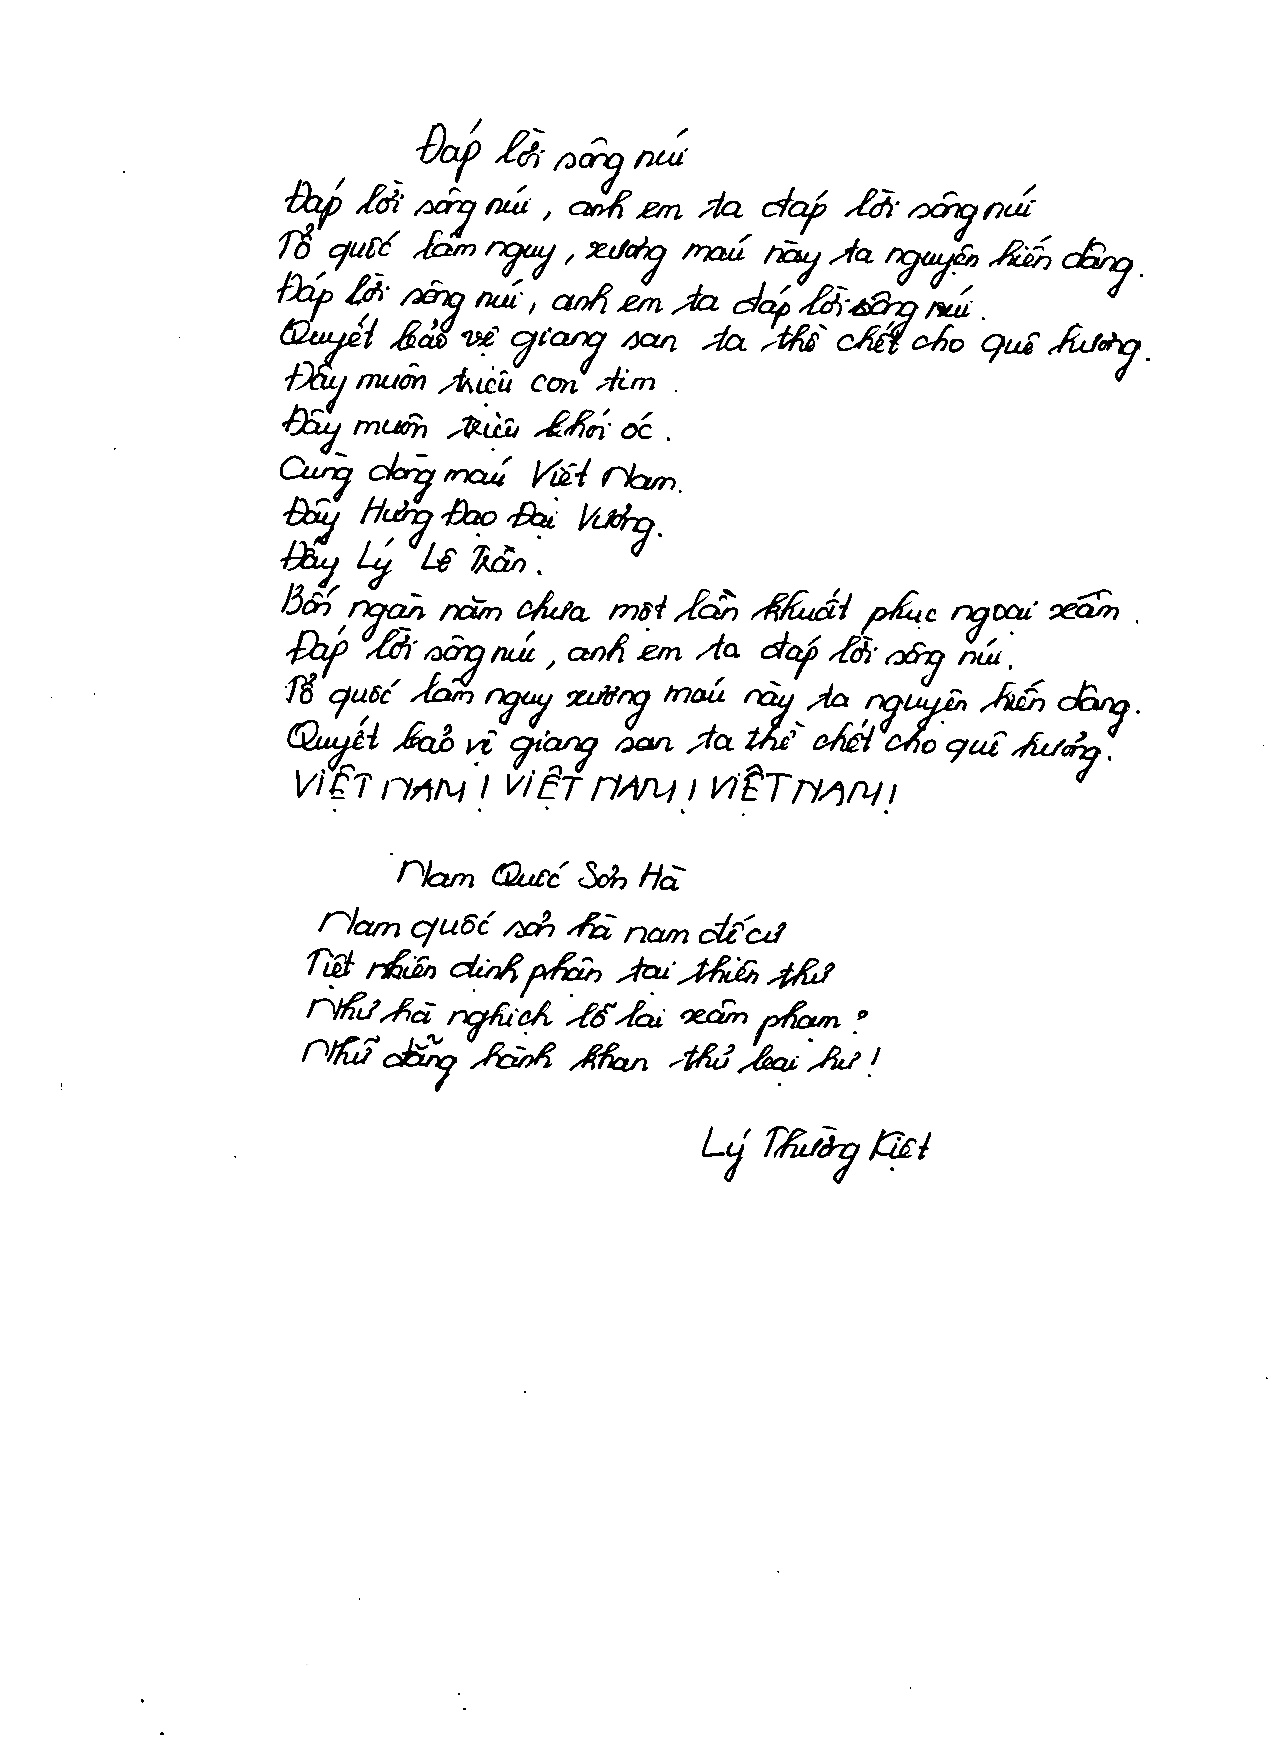 Đáp lời sông núi
Đáp lời sông núi, anh em ta đáp lời sông núi
Tổ quốc lâm nguy, xương máu này ta nguyện hiến dâng.
Đáp lời sông núi, anh em ta đáp lời sông núi.
Quyết bảo vệ giang san ta thề chết cho quê hương.
Đây muôn triệu con tim.
Đây muôn triệu khối óc.
Cùng dòng máu Việt Nam.
Đây Hưng Đạo Đại Vương.
Đây Lý Lê Trần.
Bốn ngàn năm chưa một lần khuất phục ngoại xâm.
Đáp lời sông núi, anh em ta đáp lời sông núi.
Tổ quốc lâm nguy xương máu này ta nguyện hiến dâng.
Quyết bảo vệ giang san ta thề chết cho quê hương.
VIỆT NAM! VIỆT NAM! VIỆT NAM!
Nam Quốc Sơn Hà
Nam quốc sơn hà nam đế cư
Tiệt nhiên định phận tại thiên thư
Như hà nghịch lỗ lai xâm phạm?
Nhữ đẳng hành khan thủ bại hư!
Lý Thường Kiệt